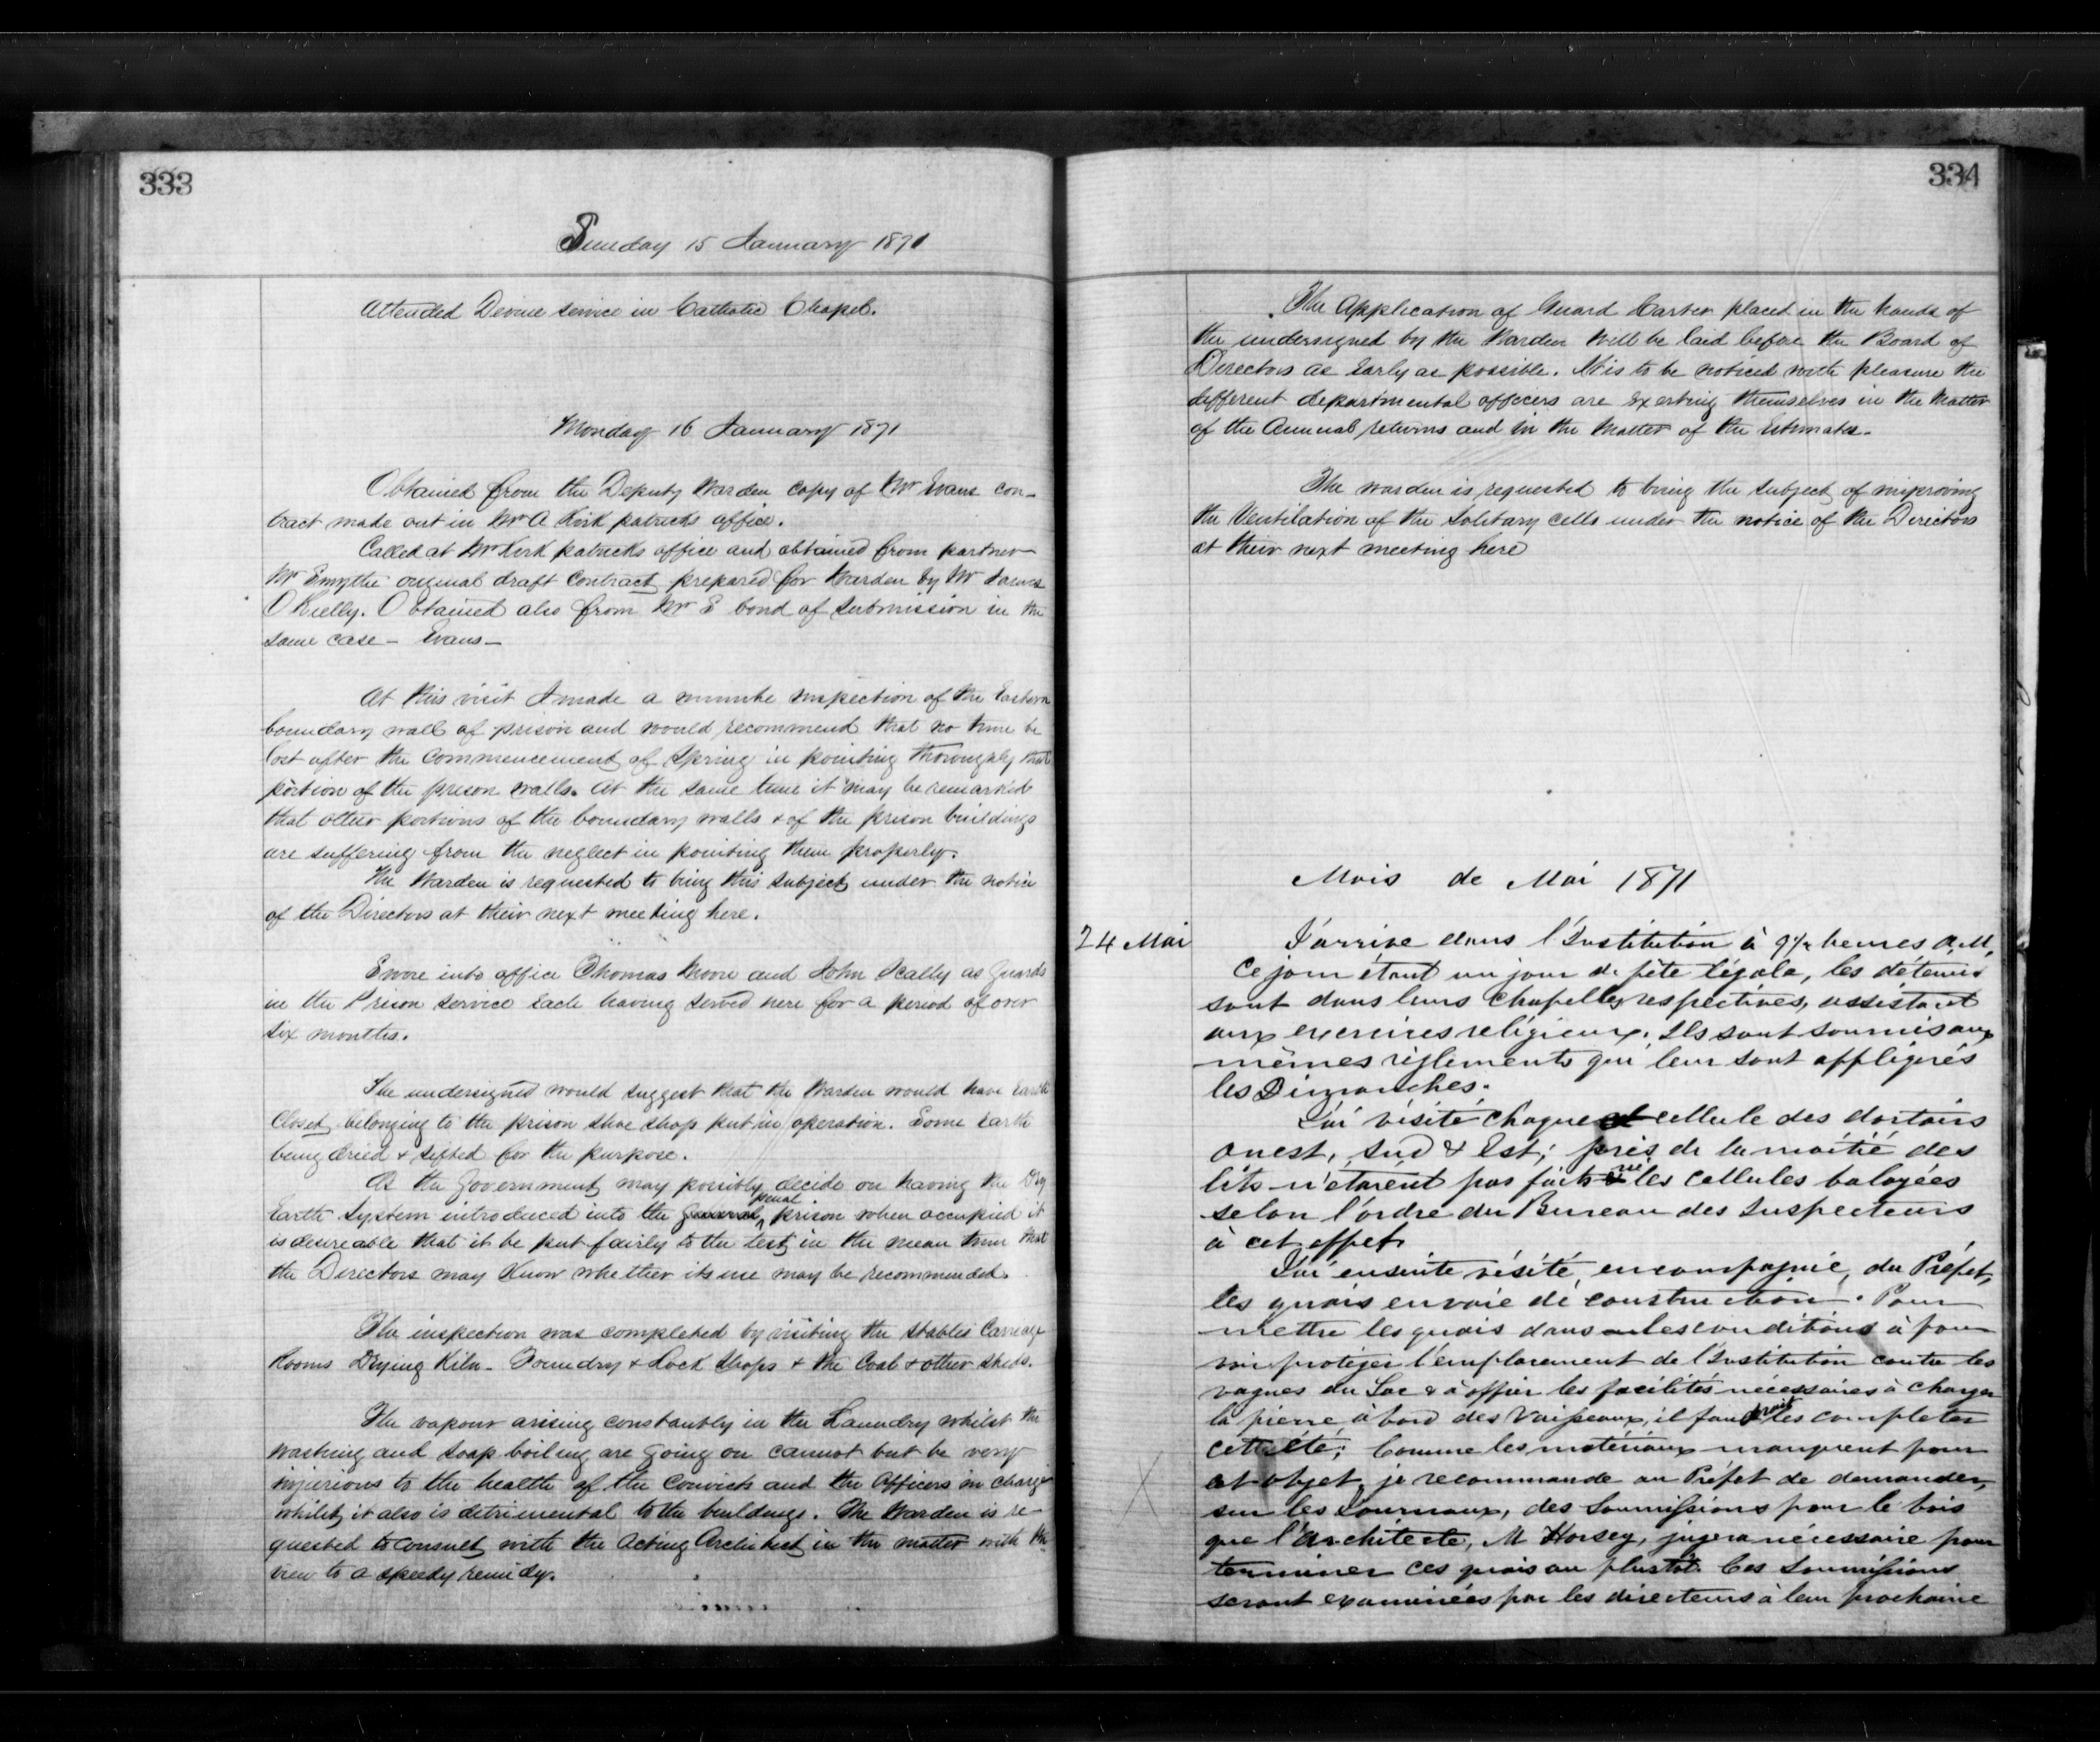 333
Sunday 15 January 1871
Attended Devine service in Catholic Chapel.
Monday 16 January 1871
Obtained from the Deputy Warden copy of Mr Evans con-
tract made out in Mr A Kirkpatricks office.
Called at Mr Kirkpatricks office and obtained from partner
Mr Smythe original draft contract prepared for Warden by Mr James
O Rielly. Obtained also from Mr S bond of submission in the
same case - Evans -
At this visit I made a minute inspection of the Eastern
boundary wall of prison and would recommend that no time be
lost after the commencement of Spring in pointing thoroughly that
portion of the prison walls. At the same time it may be remarked
that other portions of the boundary walls & of the prison buildings
are suffering from the neglect in pointing them properly.
The Warden is requested to bring this subject under the notice
of the Directors at their next meeting here.
Swore into office Thomas Moore and John Scally as Guards
in the Prison service each having served here for a period of over
six months.
The undersigned would suggest that the Warden would have Earth
Closet belonging to the prison shoe shop put in operation. Some Earth
being dried & sifted for the purpose.
As the Government may possibly decide on having the Dry
Earth System introduced into the general penal prison when occupied it
is desireable that it be put fairly to the test in the mean time that
the Directors may know whether its use may be recommended.
The inspection was completed by visiting the stables Carriage
Rooms Drying Kiln - Foundry & Lock Shops & the Coal & other sheds.
The vapour arising constantly in the Laundry whilst the
washing and soap boiling are going on cannot but be very
injurious to the health of the Convicts and the Officers in charge
whilst it also is detrimental to the buildings. The Warden is re-
quested to consult with the Acting Architect in the matter with the
view to a speedy remidy.
334
The Application of Guard Carter placed in the hands of
the undersigned by the Warden will be laid before the Board of
Directors as Early as possible. It is to be noticed with pleasure the
different departmental officers are Exerting themselves in the Matter
of the Annual returns and in the Matter of the Estimates.
The warden is requested to bring the subject of improving
the Ventilation of the Solitary Cells under the notice of the Directors
at their next meeting here
Mois de Mai 1871
24 Mai
J'arrive dans l'Institution à 9½ heures A.M.
Ce jour étant un jour de fête légale, les détenus
sont dans leurs chapelles respectives, assistant
aux exercices religieux. Ils sont soumis aux
mêmes règlements qui leur sont appliqués
les Dimanches.
J'ai visité chaque cellule des dortoirs
ouest, sud & Est; près de la moitié des
lits n'étaient pas faits ni les cellules balayées
selon l'ordre du Bureau des Inspecteurs
à cet effet.
J'ai ensuite visité, en compagnie, du Préfet,
les quais en voie de construction. Pour
mettre les quais dans les conditions à pou
voir protéger l'emplacement de l'Institution contre les
vagues du Lac & à offrir les facilités nécessaires à charger
la pierre à bord des Vaisseaux, il faudrait les completer
cet été; Comme les matériaux manquent pour
cet objet, je recommande au Préfet de demander,
sur les Journaux, des Soumissions pour le bois
que l'architecte, M Horsey, jugera nécessaire pour
terminer ces quais au plustôt. Ces Soumissions
seront examinées par les directeurs à leur prochaine